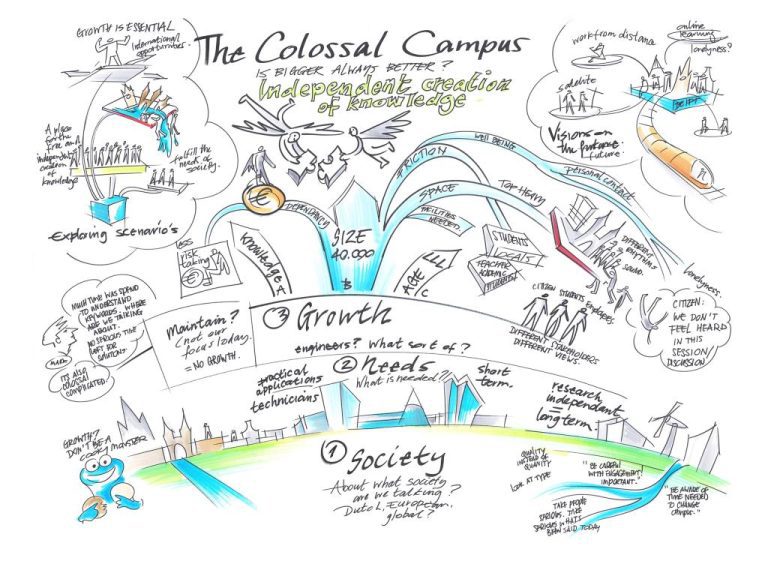 The Colossal Campus
IS BIGGER ALWAYS BETTER?
Independent creation
of knowledge
GROWTH IS ESSENTIAL
International
opportunities.
A place
for the
free and
independent
creation
of
knowledge
fulfill the
needs of
society.
Exploring scenario's
work from distance
online
learning
lonelyness?
satelite
DELFT
Visions on
the future
future
WELL BEING
personal contact
FRICTION
SPACE
TOP HEAVY
FACILITIES
NEEDED
DEPENDANCY
€
SIZE
40.000
B
LESS
risk
taking
€
Knowledge
A
AGE
C
STUDENTS
LOCALS
TEACHER
ACADEMIC
STUDENT
DIFFERENT
RHYTHMS
SOUND.
Lonelyness.
CITIZEN STUDENTS EMPLOYEES.
DIFFERENT STAKEHOLDERS
DIFFERENT VIEWS.
CITIZEN:
WE DON'T
FEEL HEARD
IN THIS
SESSION/
DISCUSSION.
MUCH TIME WAS SPEND
TO UNDERSTAND
KEYWORDS. WHERE
ARE WE TALKING
ABOUT.
NO SERIOUS TIME
LEFT FOR
SOLUTIONS.
IT'S ALSO
COLOSSAL
COMPLICATED.
Mountain?
(not our
focus today.
= NO GROWTH.
3 Growth
engineers? What sort of?
2 Needs
What is needed?
practical
applications
technicians
short
term.
research
independent
=
long term.
GROWTH?
DON'T BE A
COOKY MONSTER
1 Society
About what society
are we talking?
Dutch, European,
global?
QUALITY
INSTEAD OF
QUANTITY
LOOK AT TYPE
"BE CAREFUL
WITH ENGAGEMENT!
IMPORTANT."
TAKE PEOPLE
SERIOUS. TAKE
SERIOUS WHAT IS
BEEN SAID TODAY
"BE AWARE OF
TIME NEEDED
TO CHANGE
CAMPUS."